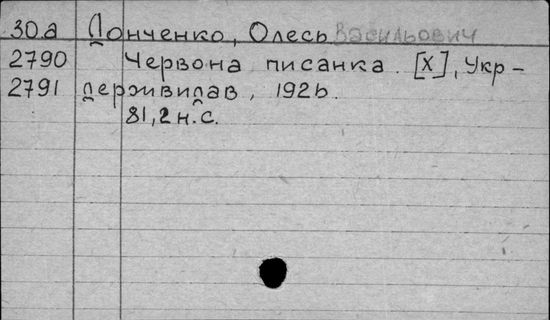 30.а Донченко, Олесь Васильович
2790 Червона писанка. [Х], Укр-
2791 держвидав, 1926.
81, 2 н.с.